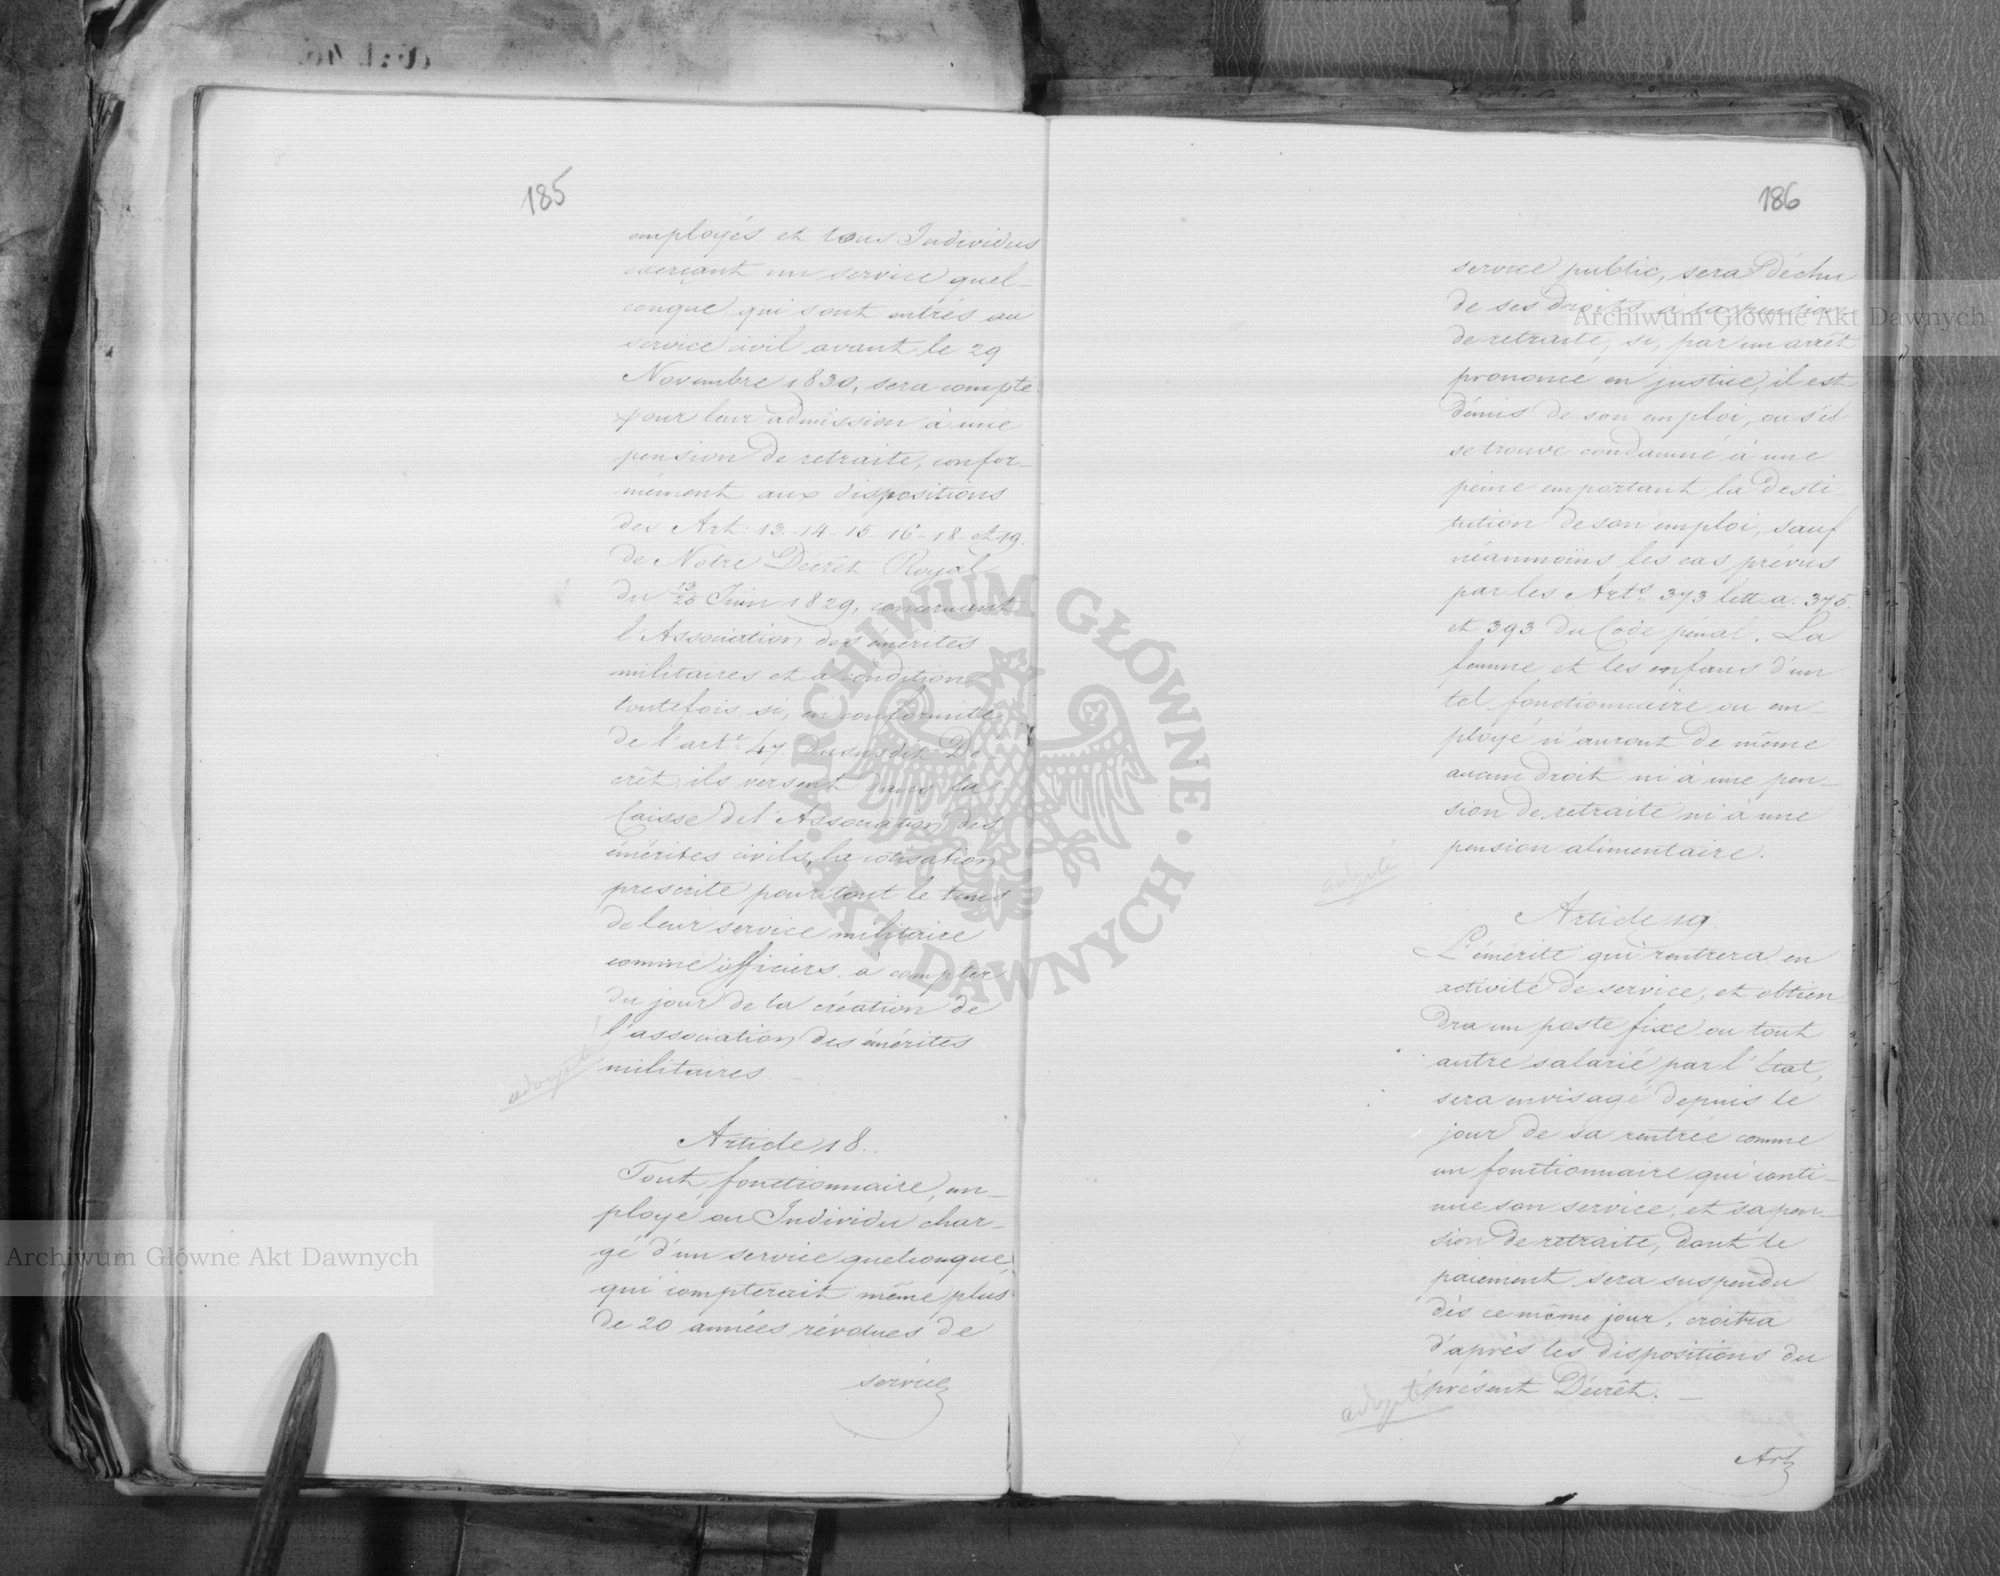 185
employés et tous Individus
exerçant un service quel-
conque qui sont entrés au
service civil avant le 29
Novembre 1830, sera compté
pour leur admission à une
pension de retraite, confor-
mément aux dispositions
des Art: 13. 14. 15. 16 - 18 et 19.
de Notre Décrêt Royal
du 13/25 Juin 1829, concernant
l'Association des émérites
militaires et à condition
toutefois si, en conformité
de l'art: 47 du susdit Dé-
crêt ils versent dans la
Caisse de l'Association des
émérites civils, la cotisation
prescrite pour tout le tems
de leur service militaire
comme officiers à compter
du jour de la création de
l'association des émérites
militaires
adopté
Article 18.
Tout fonctionnaire, em-
ployé ou Individu char-
gé d'un service quelconque,
qui compterait même plus
de 20 années révolues de
service
186
service public, sera déchu
de ses droits à la pension
de retraite, si, par un arrêt
prononcé en justice, il est
démis de son emploi, ou s'il
se trouve condamné à une
peine emportant la desti-
tution de son emploi, sauf
néanmoins les cas prévus
par les Arts 373 lett. a. 375.
et 393 du Code pénal. La
femme et les enfans d'un
tel fonctionnaire ou em-
ployé n'auront de même
aucun droit ni à une pen-
sion de retraite ni à une
pension alimentaire.
adopté
Article 19.
L'émérite qui rentrera en
activité de service, et obtien
dra un poste fixe ou tout
autre salarié par l'État,
sera envisagé depuis le
jour de sa rentrée comme
un fonctionnaire qui conti-
nue son service, et sa pen-
sion de retraite, dont le
paiement sera suspendu
dès ce même jour, croitra
d'après les dispositions du
présent Décrêt. —
adopté
Art
Archiwum Główne Akt Dawnych
Archiwum Główne Akt Dawnych
ARCHIWUM GŁÓWNE · AKT DAWNYCH ·